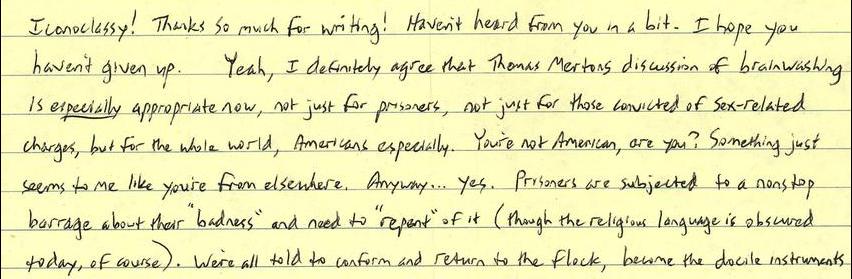 Iconoclassy! Thanks so much for writing! Haven't heard from you in a bit - I hope you
haven't given up. Yeah, I definitely agree that Thomas Mertons discussion of brainwashing
is especially appropriate now, not just for prisoners, not just for those convicted of sex-related
charges, but for the whole world, Americans especially. You're not American, are you? Something just
seems to me like you're from elsewhere. Anyway... yes. Prisoners are subjected to a nonstop
barrage about their "badness" and need to "repent" of it (though the religious language is obscured
today, of course). We're all told to conform and return to the flock, become the docile instruments